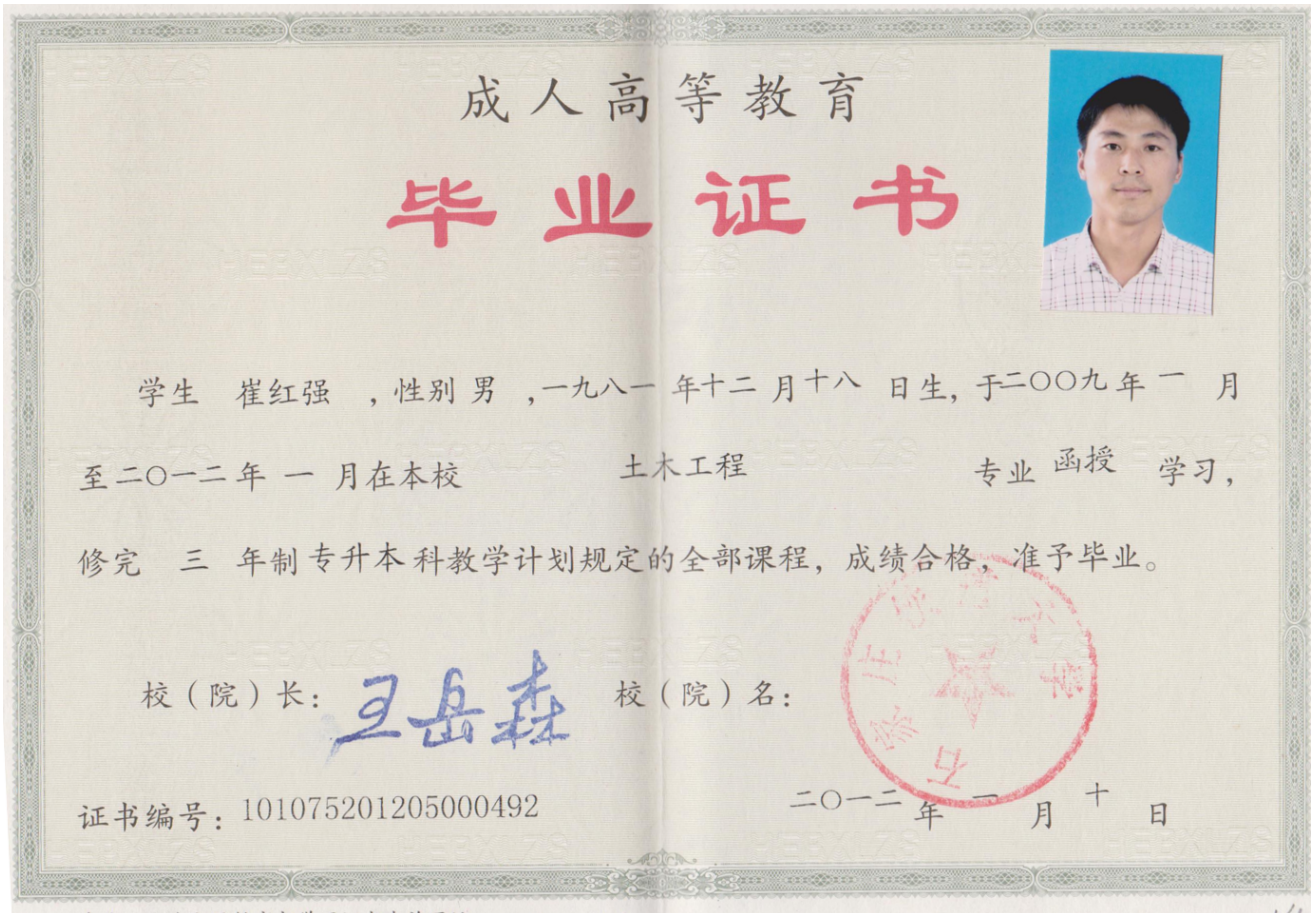 成人高等教育
毕业证书
学生 崔红强 ,性别 男 ,一九八一 年十二 月十八 日生, 于二〇〇九年 一 月
至二〇一二年 一 月在本校 土木工程 专业 函授 学习,
修完 三 年制 专升本 科教学计划规定的全部课程, 成绩合格, 准予毕业。
校(院)长: 王岳森 校(院)名:
石家庄铁道大学
证书编号: 101075201205000492 二〇一二 年 一 月 十 日
HEBXLZS